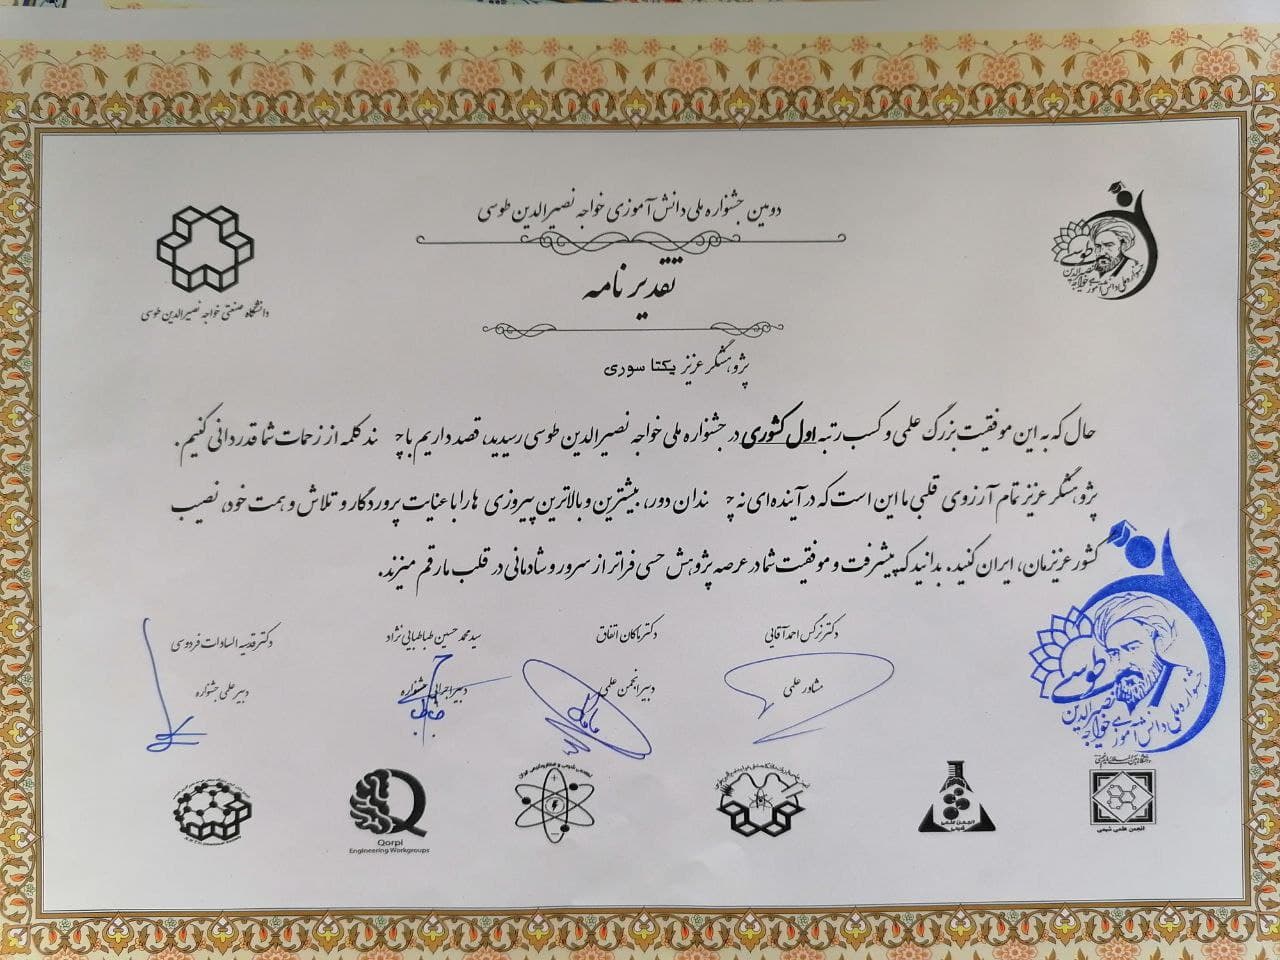 دومین جشنواره ملی دانش‌آموزی خواجه نصیرالدین طوسی
تقدیرنامه
دانشگاه صنعتی خواجه نصیرالدین طوسی
طوسی
نصیرالدین
خواجه
جشنواره ملی دانش‌آموزی
پژوهشگر عزیز یکتا سوری
حال که به این موفقیت بزرگ علمی و کسب رتبه اول کشوری در جشنواره ملی خواجه نصیرالدین طوسی رسیدید، قصد داریم با چند کلمه از زحمات شما قدردانی کنیم.
پژوهشگر عزیز تمام آرزوی قلبی ما این است که در آینده‌ای نه چندان دور، بیشترین و بالاترین پیروزی ها را با عنایت پروردگار و تلاش و همت خود، نصیب
کشور عزیزمان، ایران کنید. بدانید که پیشرفت و موفقیت شما در عرصه پژوهش حسی فراتر از سرور و شادمانی در قلب ما رقم میزند.
دکتر نرگس احمدآقایی
دکتر ماکان اتفاق
سید محمد حسین طباطبایی نژاد
دکتر قدسیه السادات فردوسی
مشاور علمی
دبیر انجمن علمی
دبیر اجرایی جشنواره
دبیر علمی جشنواره
طوسی
نصیرالدین
خواجه
جشنواره ملی دانش‌آموزی
انجمن علمی شیمی
انجمن علمی
شیمی
Qorpi
Engineering Workgroups